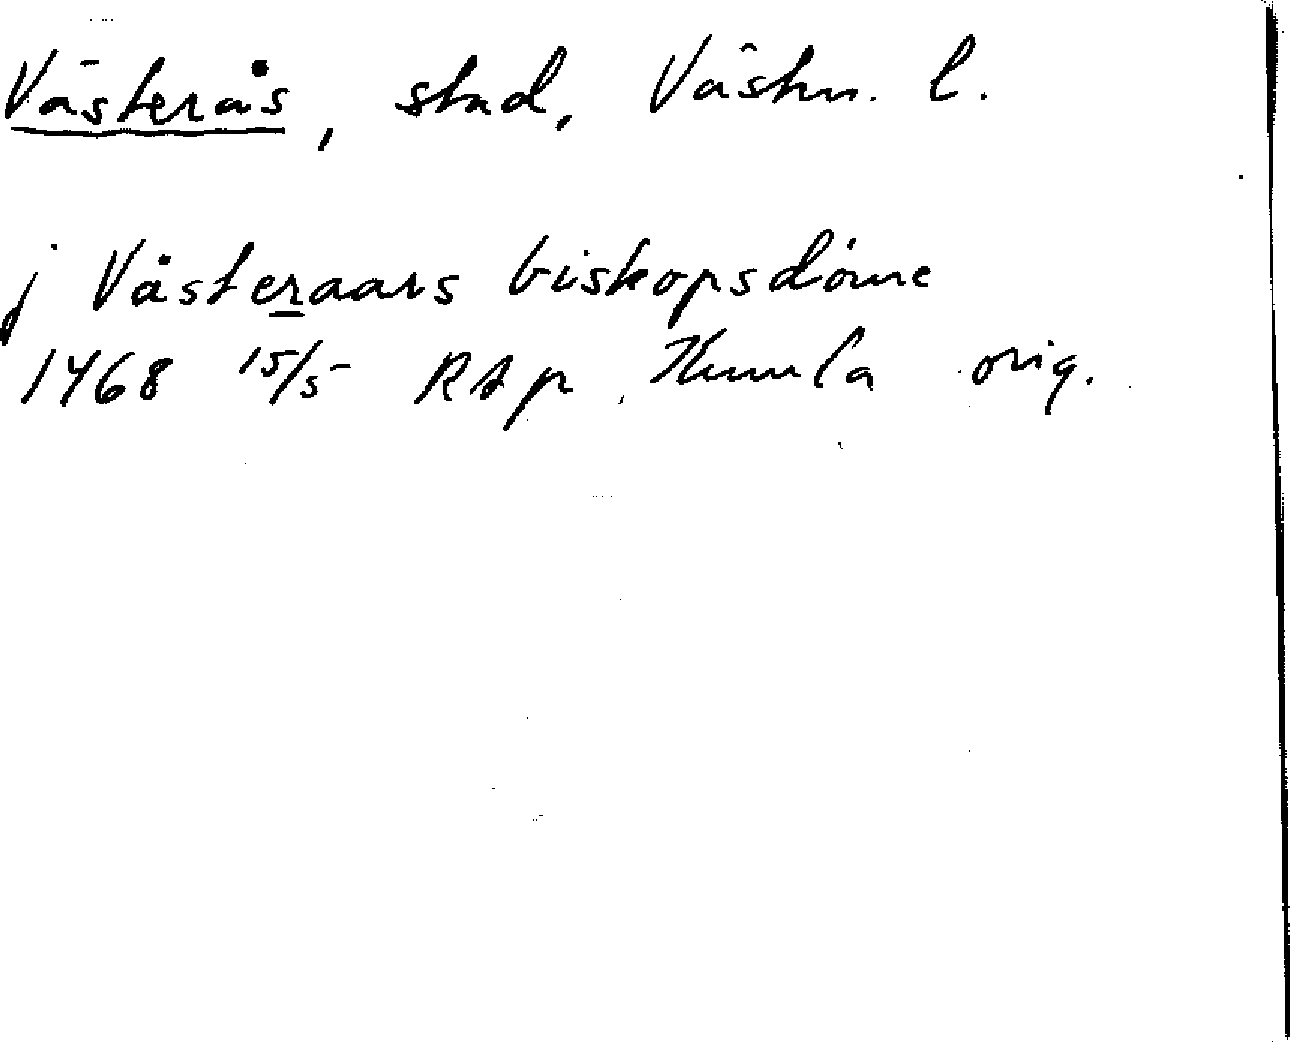 Västerås, stad, Västm. l.
j Västeraars biskopsdöme
1468 15/5 RAp Kumla orig.